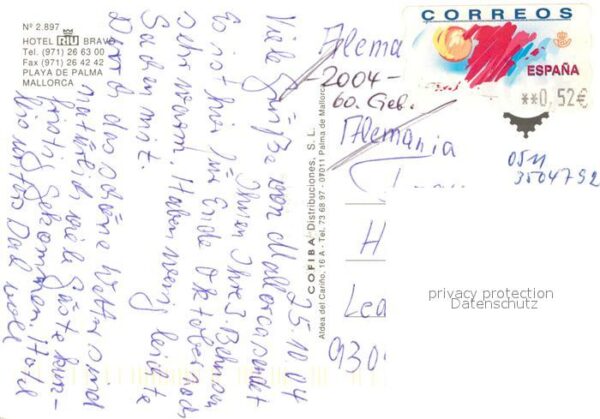 Nº 2.897
HOTEL RIU BRAVO
Tel. (971) 26 63 00
Fax (971) 26 42 42
PLAYA DE PALMA
MALLORCA
25.10.04
Viele Grüße von Mallorca sendet
Ihnen Ihre J.
Es ist hier für Ende Oktober noch
sehr warm. Haben wenig leichte
Sachen mit.
Durch das schöne Wetter sind
natürlich viele Gäste kurz-
fristig gekommen. Hotel
bis unters Dach voll
COFIBA Distribuciones, S. L.
Aldea del Cariño, 16 A - Tel. 73 68 97 - 07011 Palma de Mallorca
CORREOS
ESPAÑA
**0,52€
Alema
-2004-
60. Geb.
Alemania
H
Lea
930
0511
3504792
privacy protection
Datenschutz